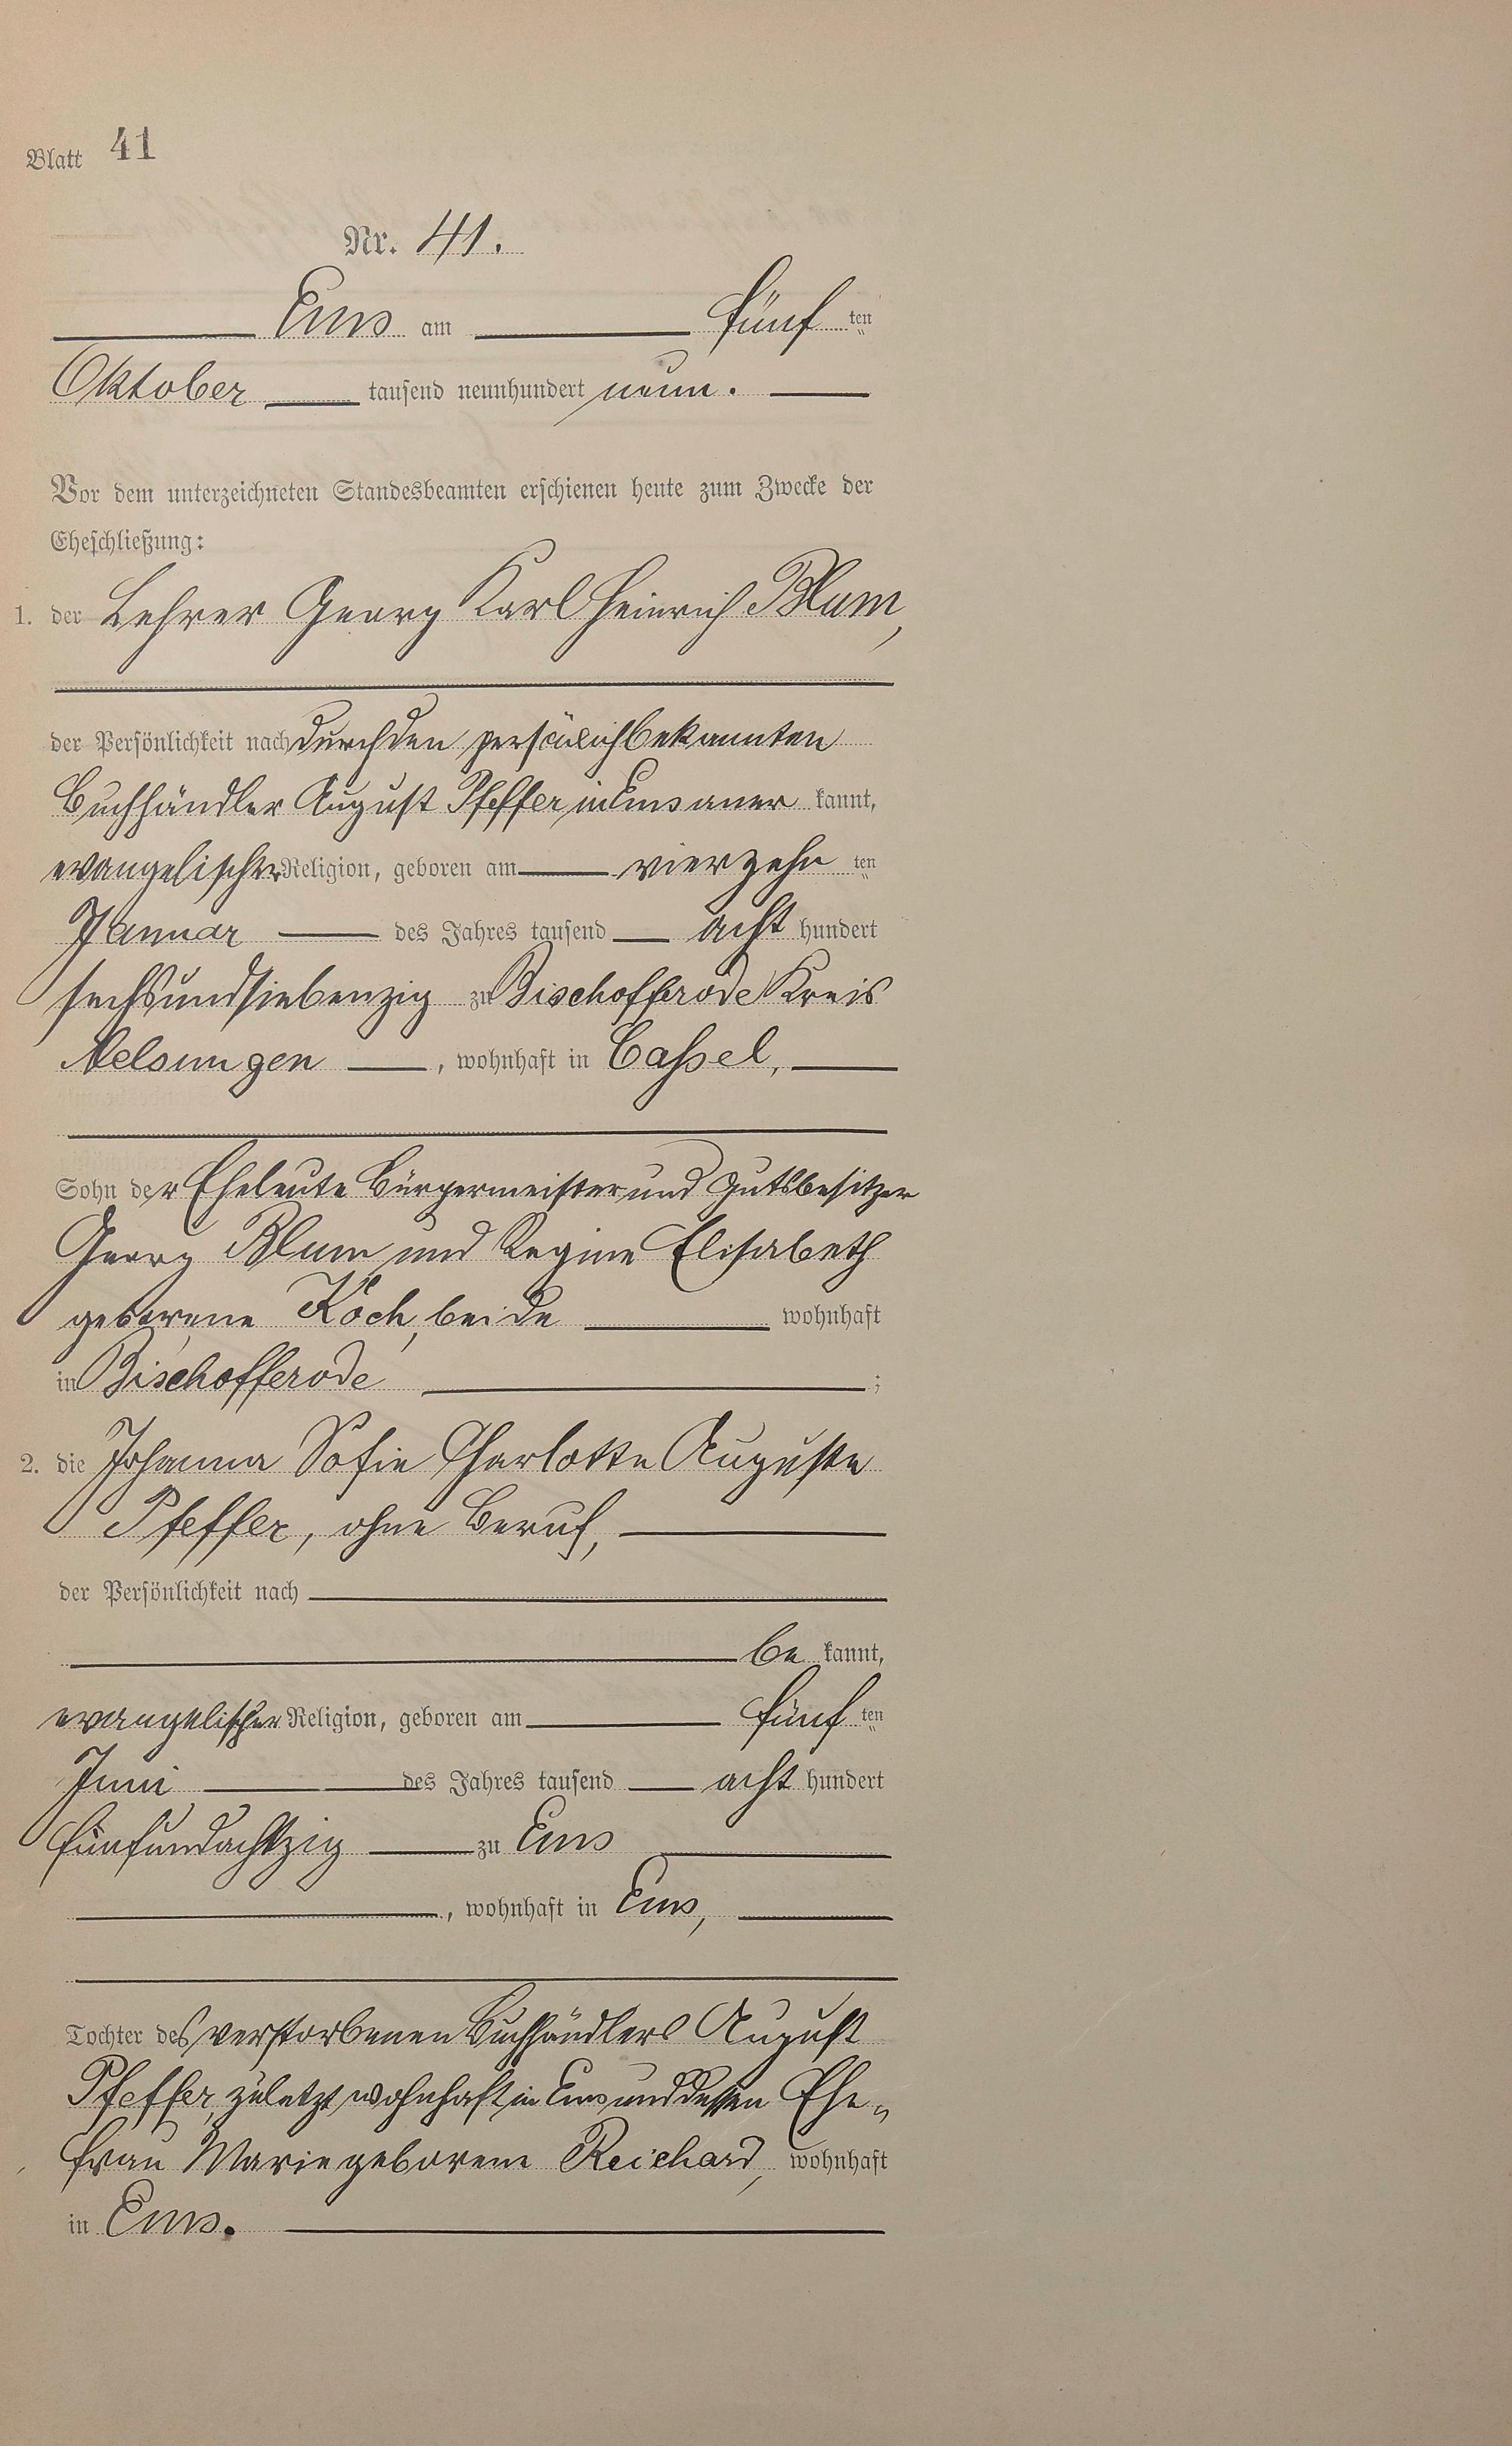 Blatt 41
Nr. 41.
Ems am fünf ten
Oktober tausend neunhundert neun.
Vor dem unterzeichneten Standesbeamten erschienen heute zum Zwecke der
Eheschließung:
1. der Lehrer Georg Karl Heinrich Blum,
der Persönlichkeit nach durch den persönlich bekannten
Buchhändler August Pfeffer in Ems aner kannt,
evangelischer Religion, geboren am vierzehn ten
Januar des Jahres tausend acht hundert
sechsundsiebenzig zu Bischofferode Kreis
Melsungen, wohnhaft in Cassel,
Sohn der Eheleute Bürgermeister und Gutsbesitzer
Georg Blum und Regine Elisabeth
geborene Koch, beide wohnhaft
in Bischofferode;
2. die Johanna Sofie Charlotte Auguste
Pfeffer, ohne Beruf,
der Persönlichkeit nach
be kannt,
evangelischer Religion, geboren am fünf ten
Juni des Jahres tausend acht hundert
fünfundachtzig zu Ems
, wohnhaft in Ems,
Tochter des verstorbenen Buchhändlers August
Pfeffer, zuletzt wohnhaft in Ems und dessen Ehe„
frau Marie geborene Reichard, wohnhaft
in Ems.